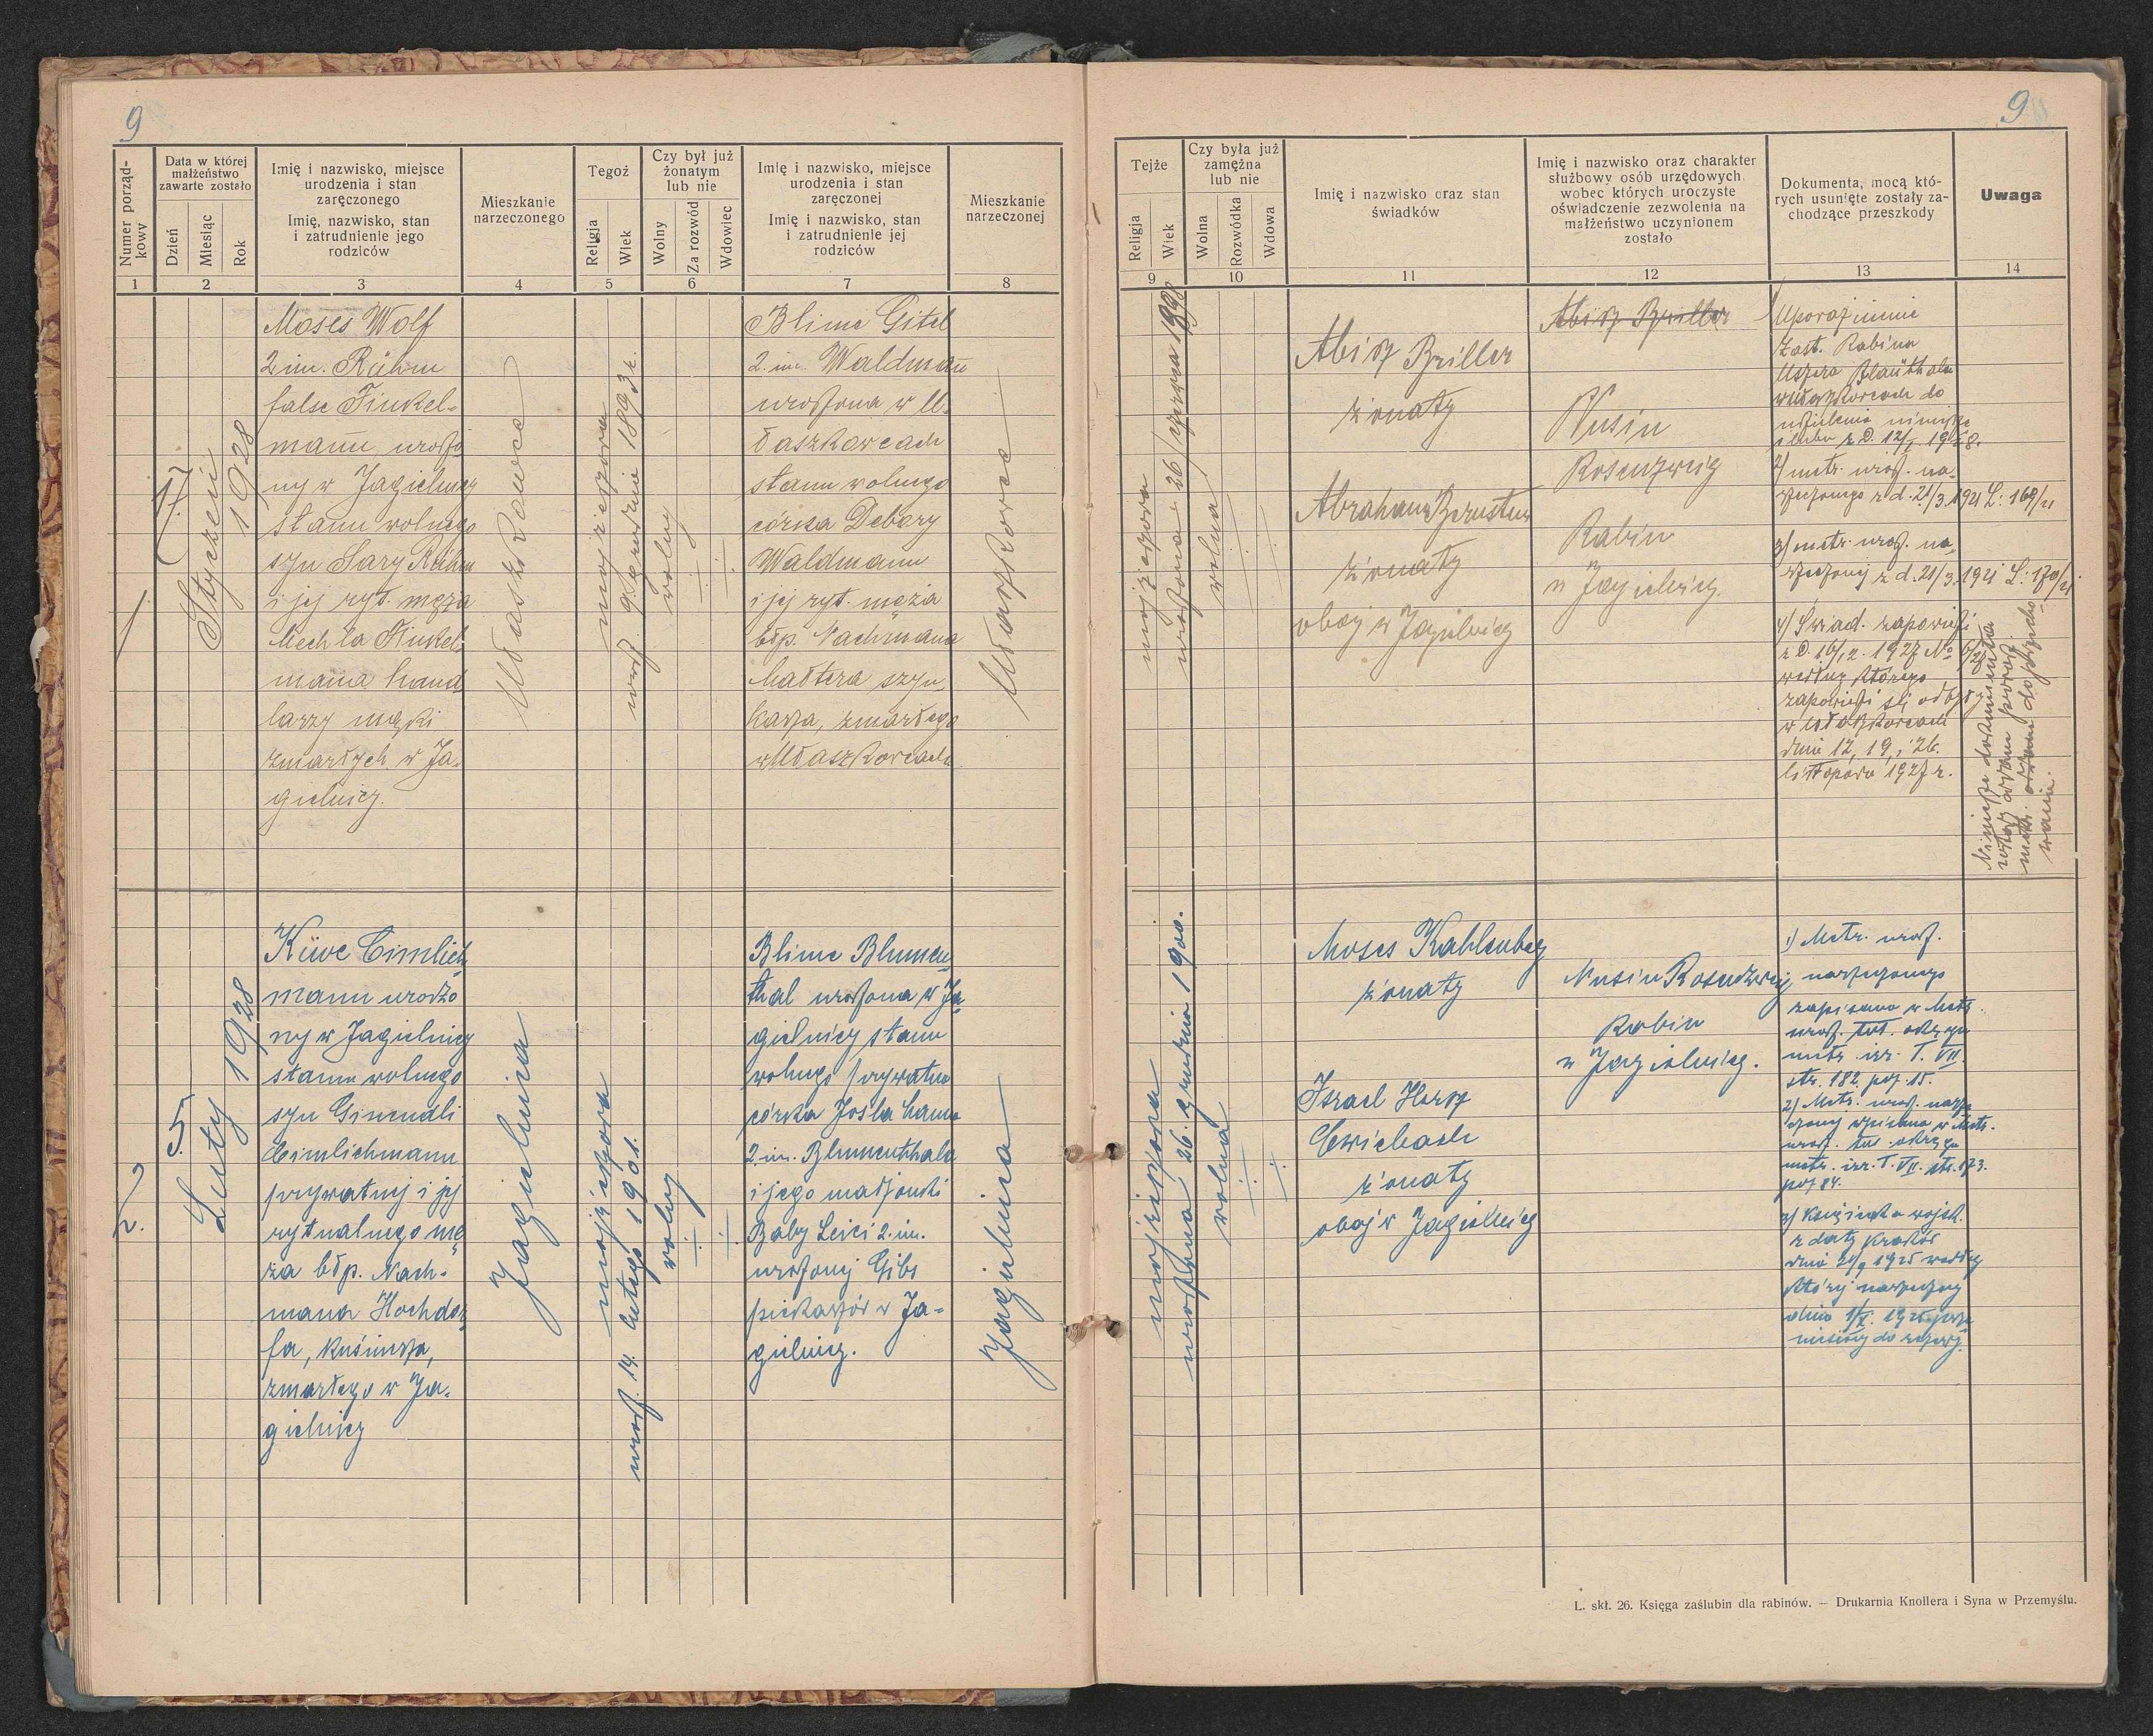 9
Numer porząd-
kowy
Data w której
małżeństwo
zawarte zostało
Dzień
Miesiąc
Rok
Imię i nazwisko, miejsce
urodzenia i stan
zaręczonego
Imię, nazwisko, stan
i zatrudnienie jego
rodziców
Mieszkanie
narzeczonego
Tegoż
Religja
Wiek
Czy był już
żonatym
lub nie
Wolny
Za rozwód
Wdowiec
Imię i nazwisko, miejsce
urodzenia i stan
zaręczonej
Imię i nazwisko, stan
i zatrudnienie jej
rodziców
Mieszkanie
narzeczonej
1
2
3
4
5
6
7
8
1
17.
Styczeń
1928
Moses Wolf
2 im. Rühm
false Finkel-
mann urodzo
ny w Jagielnicy
stanu wolnego
syn Sary Rühm
i jej ryt. męża
Mechla Finkel-
manna hand
larzy mąki
zmarłych w Ja-
gielnicy.
Ułaszkowce
mojżeszowa
urodz. 9. grudnia 1893 r.
wolny
Blime Gitel
2. im. Waldmann
urodzona w U-
łaszkowcach
stanu wolnego
córka Debory
Waldmann
i jej ryt. męża
błp. Nachmana
szyn
karza, zmarłego
w Ułaszkowcach
Ułaszkowce
2.
5.
Luty
1928
Kiwe Cimlich
mann urodzo
ny w Jagielnicy
stanu wolnego
syn Gimendli
Cimlichmann
prywatnej i jej
rytualnego mę
ża błp. Nach-
mana Hochdor
fa, kuśnierza,
zmarłego w Ja-
gielnicy
Jagielnica
mojżeszowa
urodz. 14. lutego 1901.
wolny
Blime Blumen
thal urodzona w Ja-
gielnicy stanu
wolnego prywatna
córka Josla
2. im. Blumenthala
i jego małżonki
Baby Leici 2. im.
urodzonej Gibs
piekarzów w Ja-
gielnicy.
Jagielnica
9
Tejże
Religja
Wiek
Czy była już
zamężna
lub nie
Wolna
Rozwódka
Wdowa
Imię i nazwisko oraz stan
świadków
Imię i nazwisko oraz charakter
służbowy osób urzędowych,
wobec których uroczyste
oświadczenie zezwolenia na
małżeństwo uczynionem
zostało
Dokumenta, mocą któ-
rych usunięte zostały za-
chodzące przeszkody
Uwaga
9
10
11
12
13
14
mojżeszowa
urodzona 26 czerwca
wolna
Abisz Briller
żonaty
Abraham
żonaty
obaj w Jagielnicy
Abisz Briller
Nusin
Rosenzweig
Rabin
w Jagielnicy
Uporażnienie
Zast. Rabina
w Ułaszkowcach do
udzielenia
ślubu z D. 12/I. 1928.
2) metr. urodz. na-
rzeczonego z d. 21/3. 1921 L: 169/21
3) metr. urodz. na-
rzeczonej z d. 21/3. 1921 L: 170/21
4) Świad. zapowiedzi
z D. 16/12. 1927 No
według którego
zapowiedzi się odbyły
w Ułaszkowcach
dnia 12, 19, i 26.
listopada 1927 r.
mojżeszowa
urodzona 26. grudnia 1900.
wolna
Moses Kahlenberg
żonaty
Israel Hersz
Cwiebach
żonaty
obaj w Jagielnicy
Nusin Rosenzweig
Rabin
w Jagielnicy.
1) Metr. urodz.
narzeczonego
zapisano w Metr.
urodz. tut. okręgu
metr. izr. T. VII.
str. 182. poz. 15.
2) Metr. urodz. narze
czonej wpisana w Metr.
urodz. tut. okręgu
metr. izr. T. VII. str. 173.
poz 84.
3) Książeczka wojsk.
z daty Kraków
według
której narzeczony
prze
niesiony do rezerwy.
L. skł. 26. Księga zaślubin dla rabinów. — Drukarnia Knollera i Syna w Przemyślu.